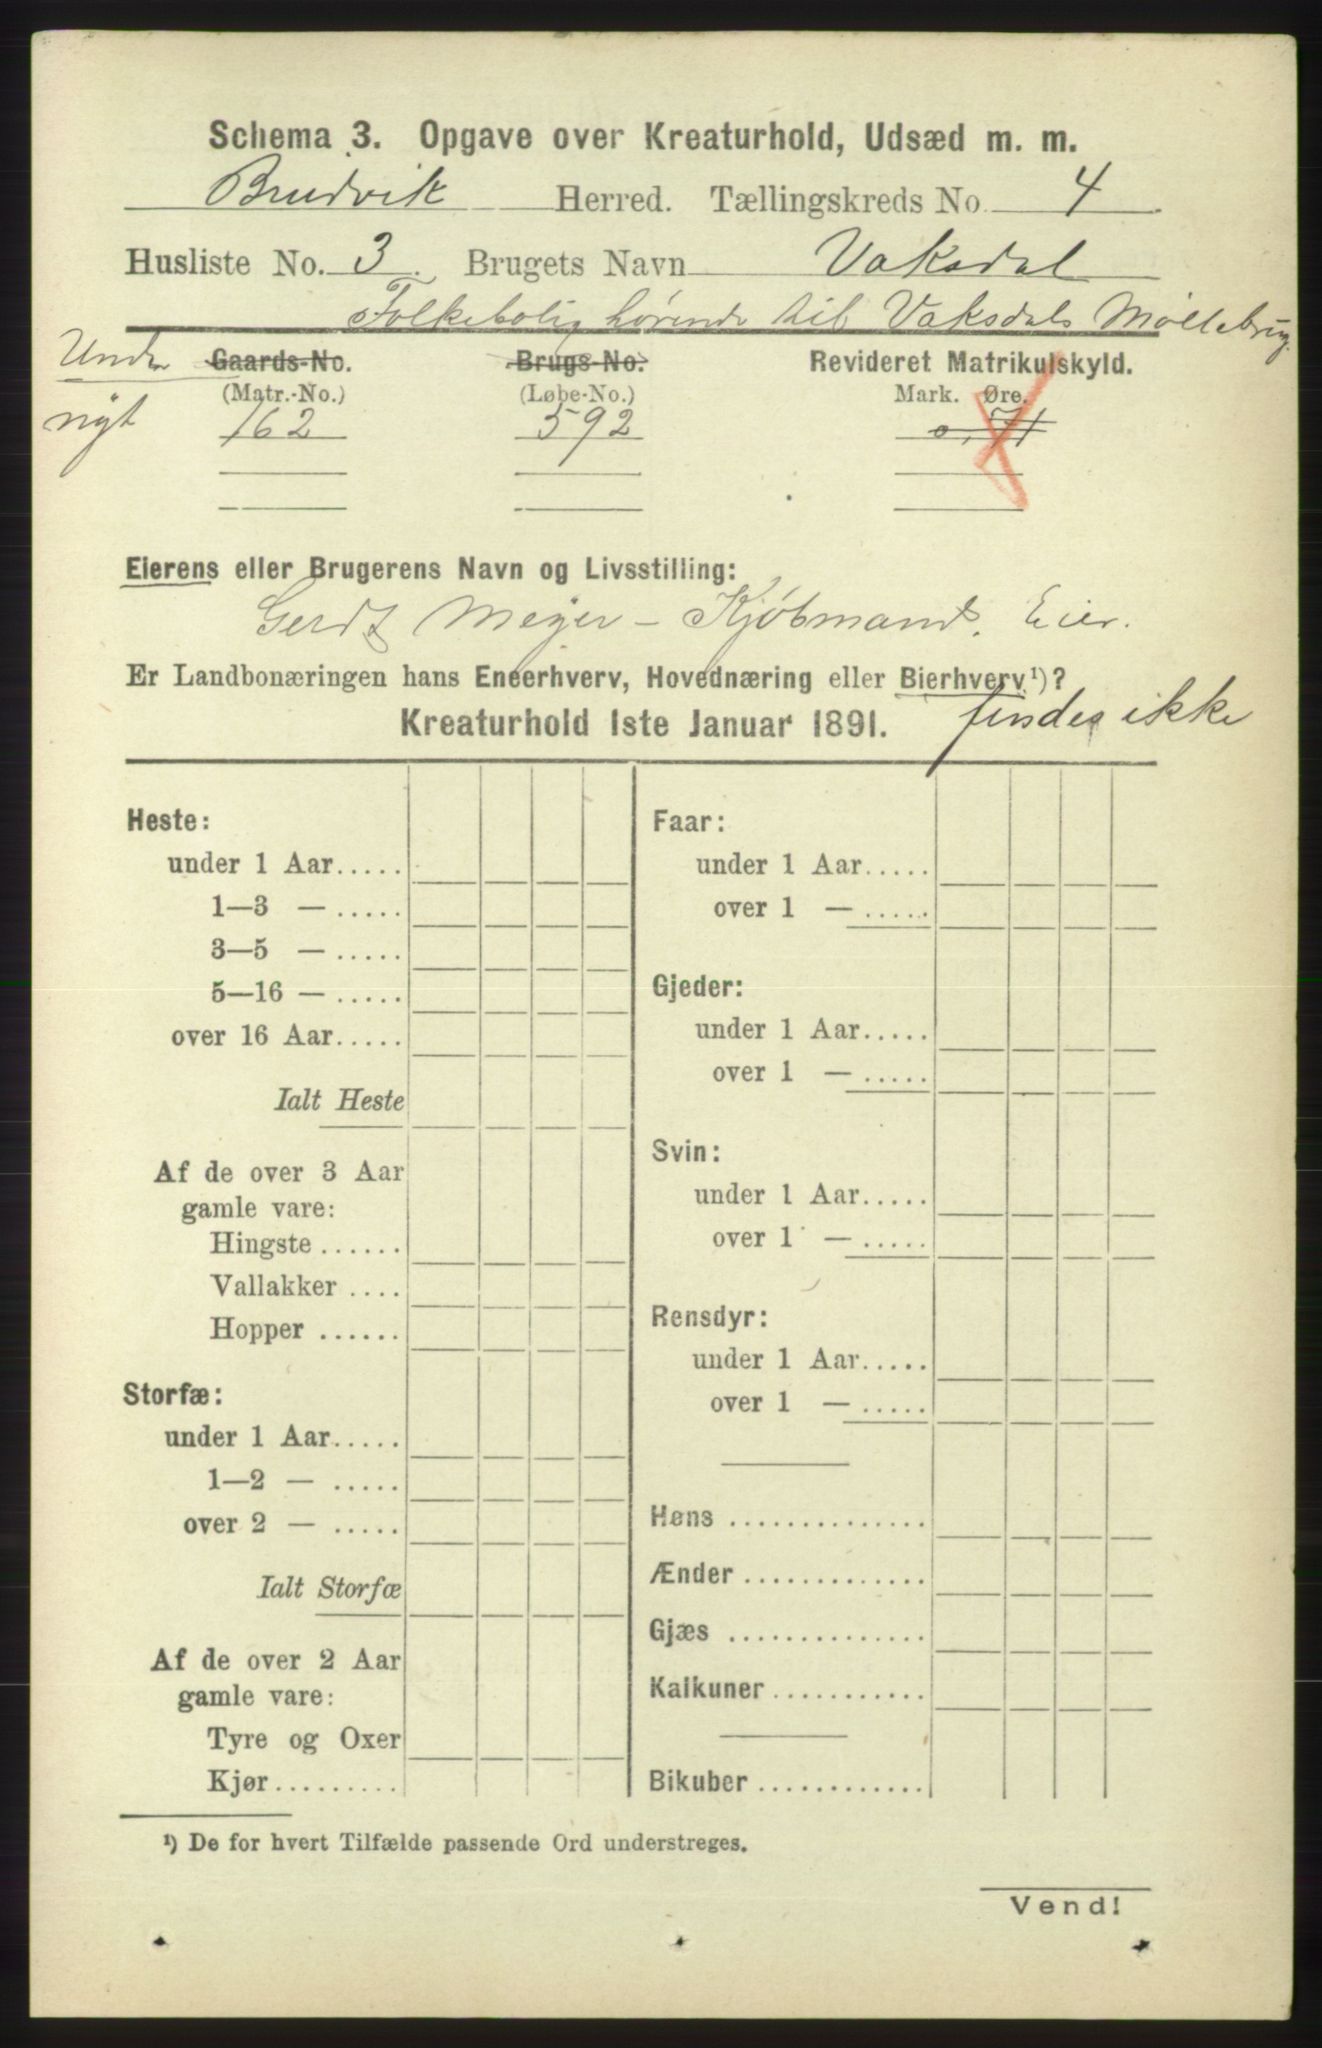 Schema 3. Opgave over Kreaturhold, Udsæd m. m.
Brudvik Herred. Tællingskreds No. 4
Husliste No. 3. Brugets Navn Vaksdal
Folkebolig hørende til Vaksdals Møllebrug.
Under Gaards-No. Brugs-No. Revideret Matrikulskyld.
(Matr.-No.) (Løbe-No.) Mark. Øre.
nyt 162 592 0,71
Eierens eller Brugerens Navn og Livsstilling:
Gerdt Meyer - Kjøbmand, Eier.
Er Landbonæringen hans Eneerhverv, Hovednæring eller Bierhverv¹)?
Kreaturhold 1ste Januar 1891. findes ikke
Heste:
under 1 Aar.....
1—3 — .....
3—5 — .....
5—16 — .....
over 16 Aar.....
Ialt Heste
Af de over 3 Aar
gamle vare:
Hingste ......
Vallakker ....
Hopper ......
Storfæ:
under 1 Aar.....
1—2 — .....
over 2 — .....
Ialt Storfæ
Af de over 2 Aar
gamle vare:
Tyre og Oxer
Kjør.........
Faar:
under 1 Aar.....
over 1 — .....
Gjeder:
under 1 Aar.....
over 1 — .....
Svin:
under 1 Aar.....
over 1 — .....
Rensdyr:
under 1 Aar.....
over 1 — .....
Høns ..............
Ænder .............
Gjæs ..............
Kalkuner...........
Bikuber ............
¹) De for hvert Tilfælde passende Ord understreges.
Vend!